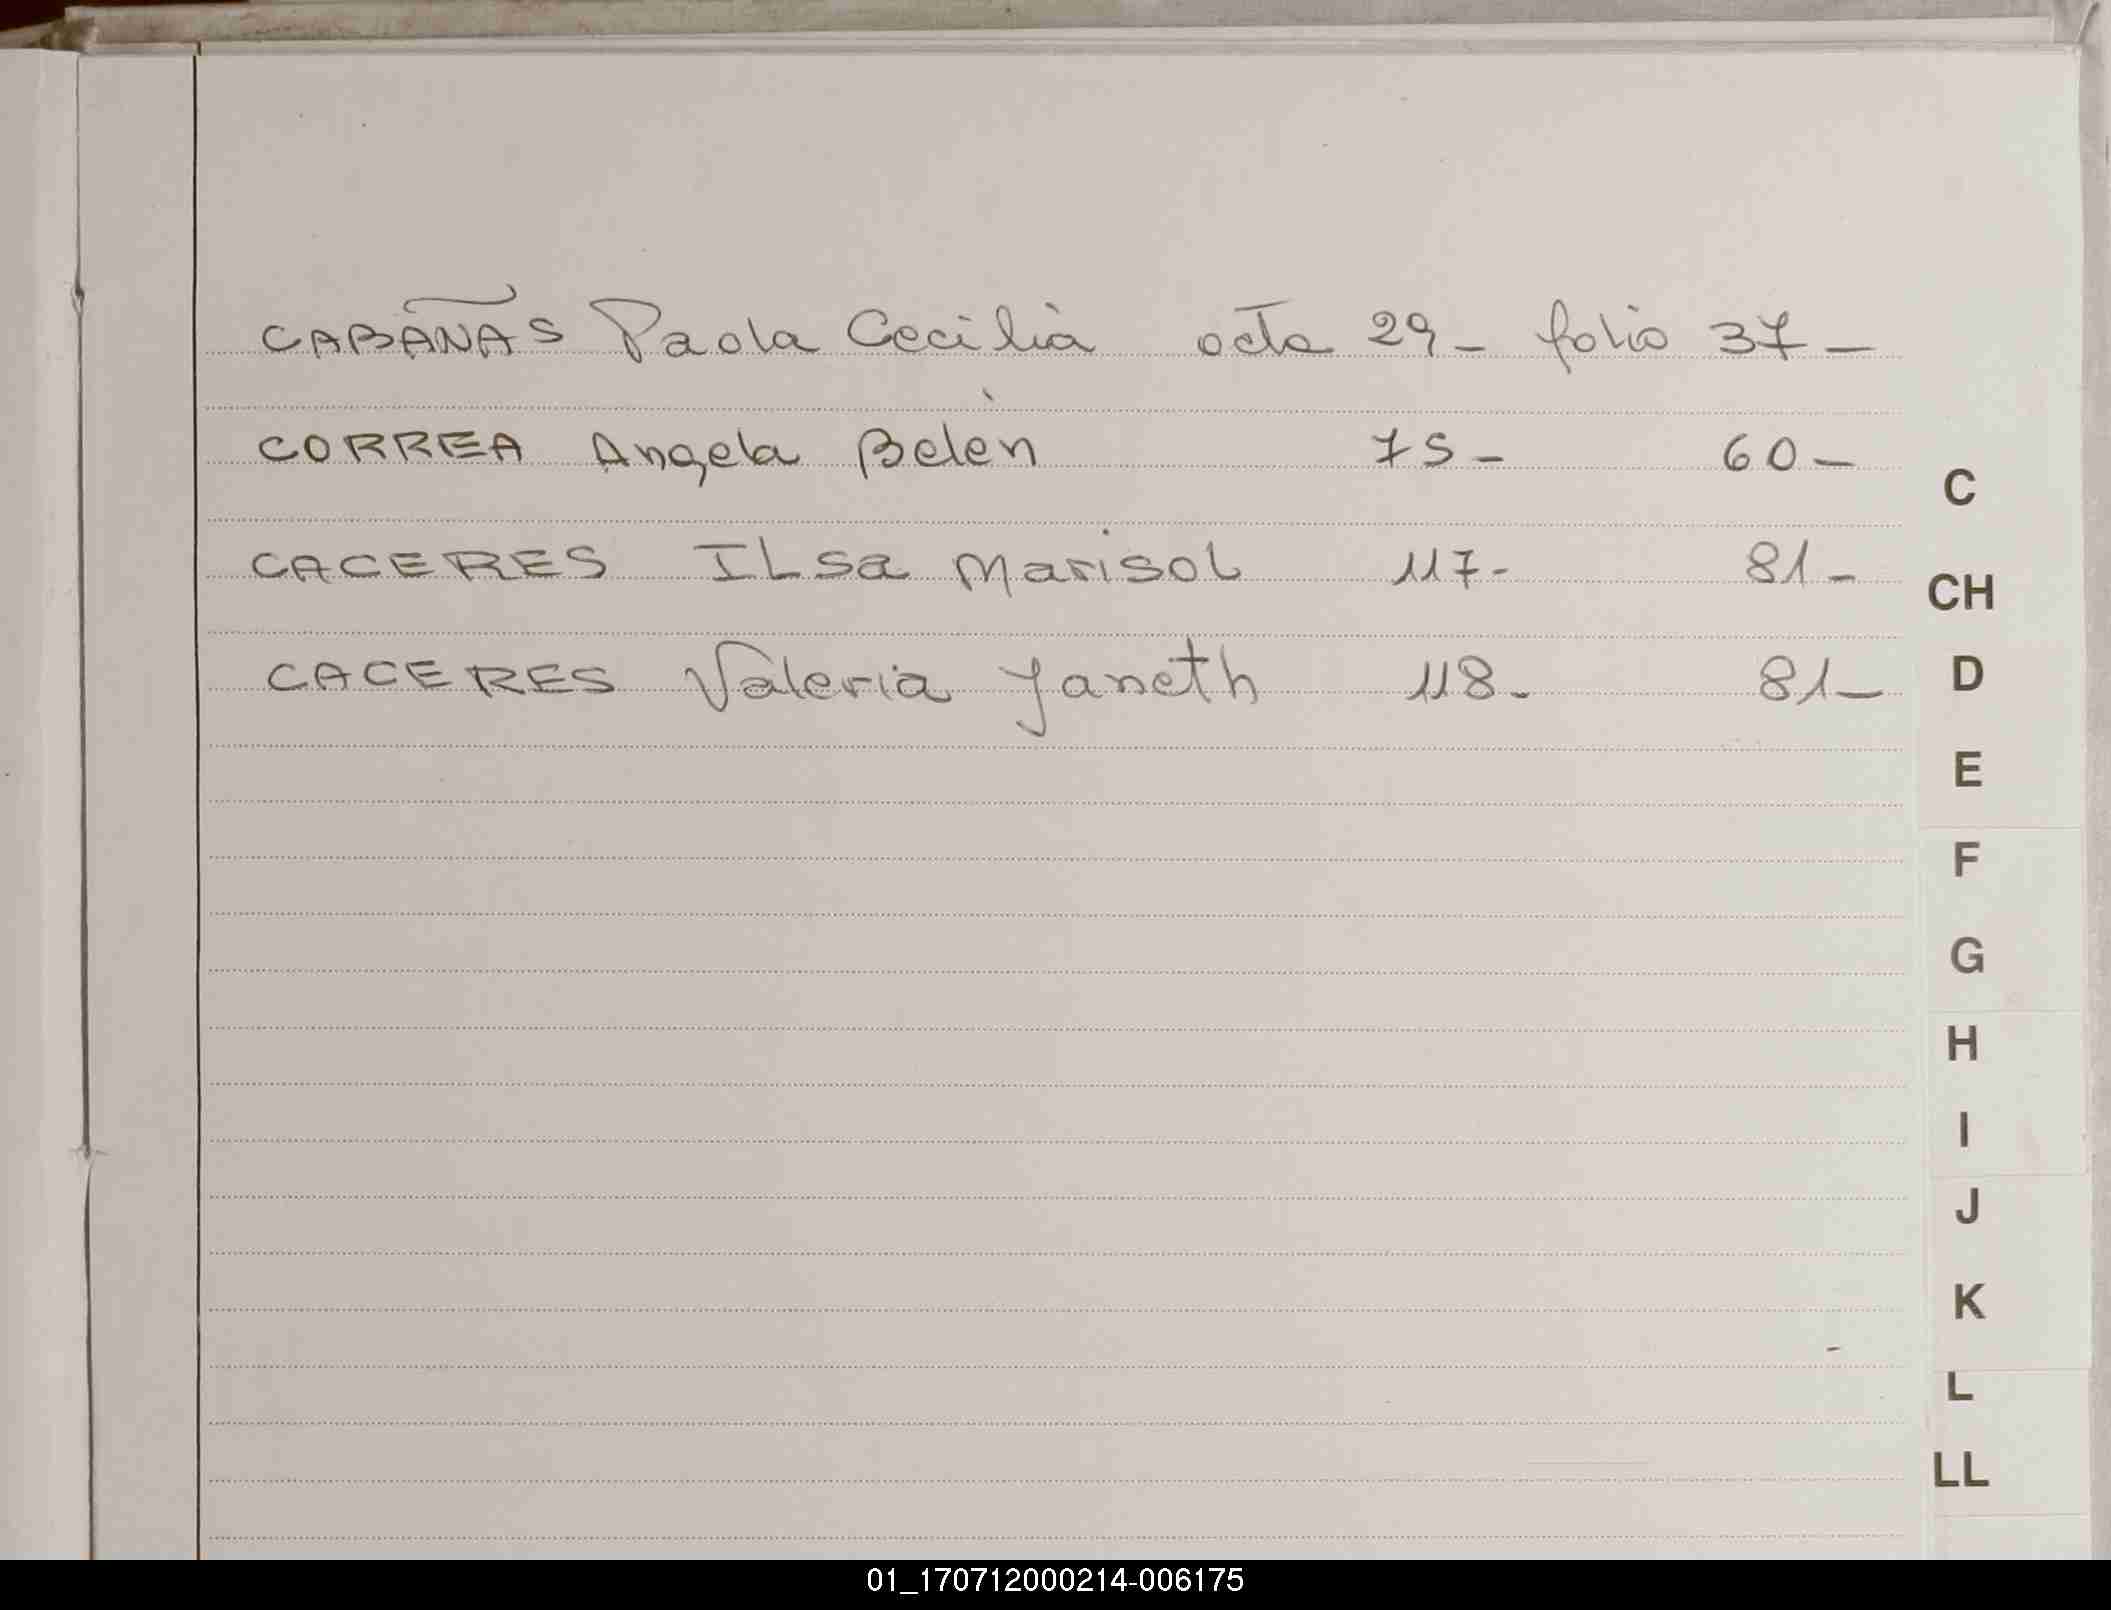 CABAÑAS Paola Cecilia acta 29 - folio 37 -
CORREA Angela Belén 75 - 60 -
CACERES ILsa Marisol 117 - 81 -
CACERES Valeria Janeth 118 - 81 -
C
CH
D
E
F
G
H
I
J
K
L
LL
01_170712000214-006175